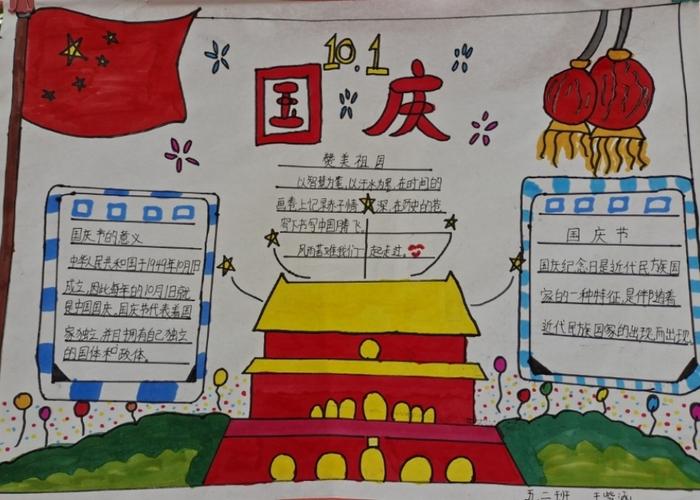 10.1
国庆
赞美祖国
以智慧为笔,以汗水为墨,在时间的
画卷上记录赤子情深,在历史的卷
写下书写中国腾飞
风雨基难我们一起走过。
国庆节的意义
中华人民共和国于1949年10月1日
成立,因此每年的10月1日就
是中国国庆。国庆节代表着国
家独立,并且拥有自己独立
的国体和政体。
国庆节
国庆纪念日是近代民族国
家的一种特征,是伴随着
近代民族国家的出现而出现,
五.二班